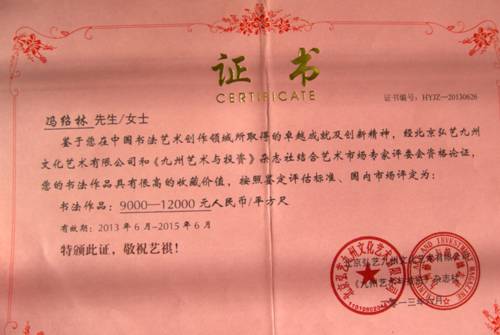 证书
CERTIFICATE
证书编号：HYJZ—20130626
冯绍林 先生/女士
鉴于您在中国书法艺术创作领域所取得的卓越成就及创新精神，经北京弘艺九州
文化艺术有限公司和《九州艺术与投资》杂志社结合艺术市场专家评委会资格论证，
您的书法作品具有很高的收藏价值，按照鉴定评估标准、国内市场评定为：
书法作品：9000—12000 元人民币/平方尺
有效期：2013 年 6 月—2015 年 6 月
特颁此证，敬祝艺祺！
北京弘艺九州文化艺术有限公司
《九州艺术与投资》杂志社
二〇一三年六月